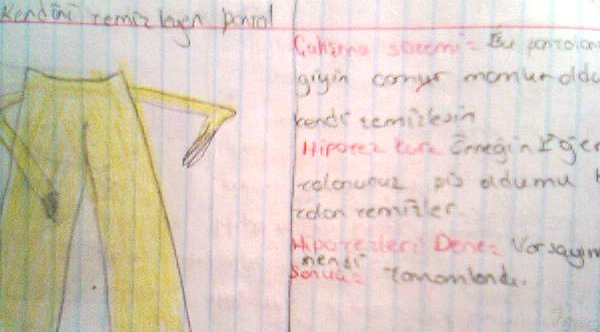 Kendini temizleyen pantol
Çalışma sistemi: Bu pantolonu
giyin çamur mamur oldu
kendi temizlesin
Hipotez kur: Örneğin Eğer
tolonunuz pis oldumu
tolon temizler.
Hipotezleri Dene: Varsayım
mendi
Sonuç: Tamamlandı.